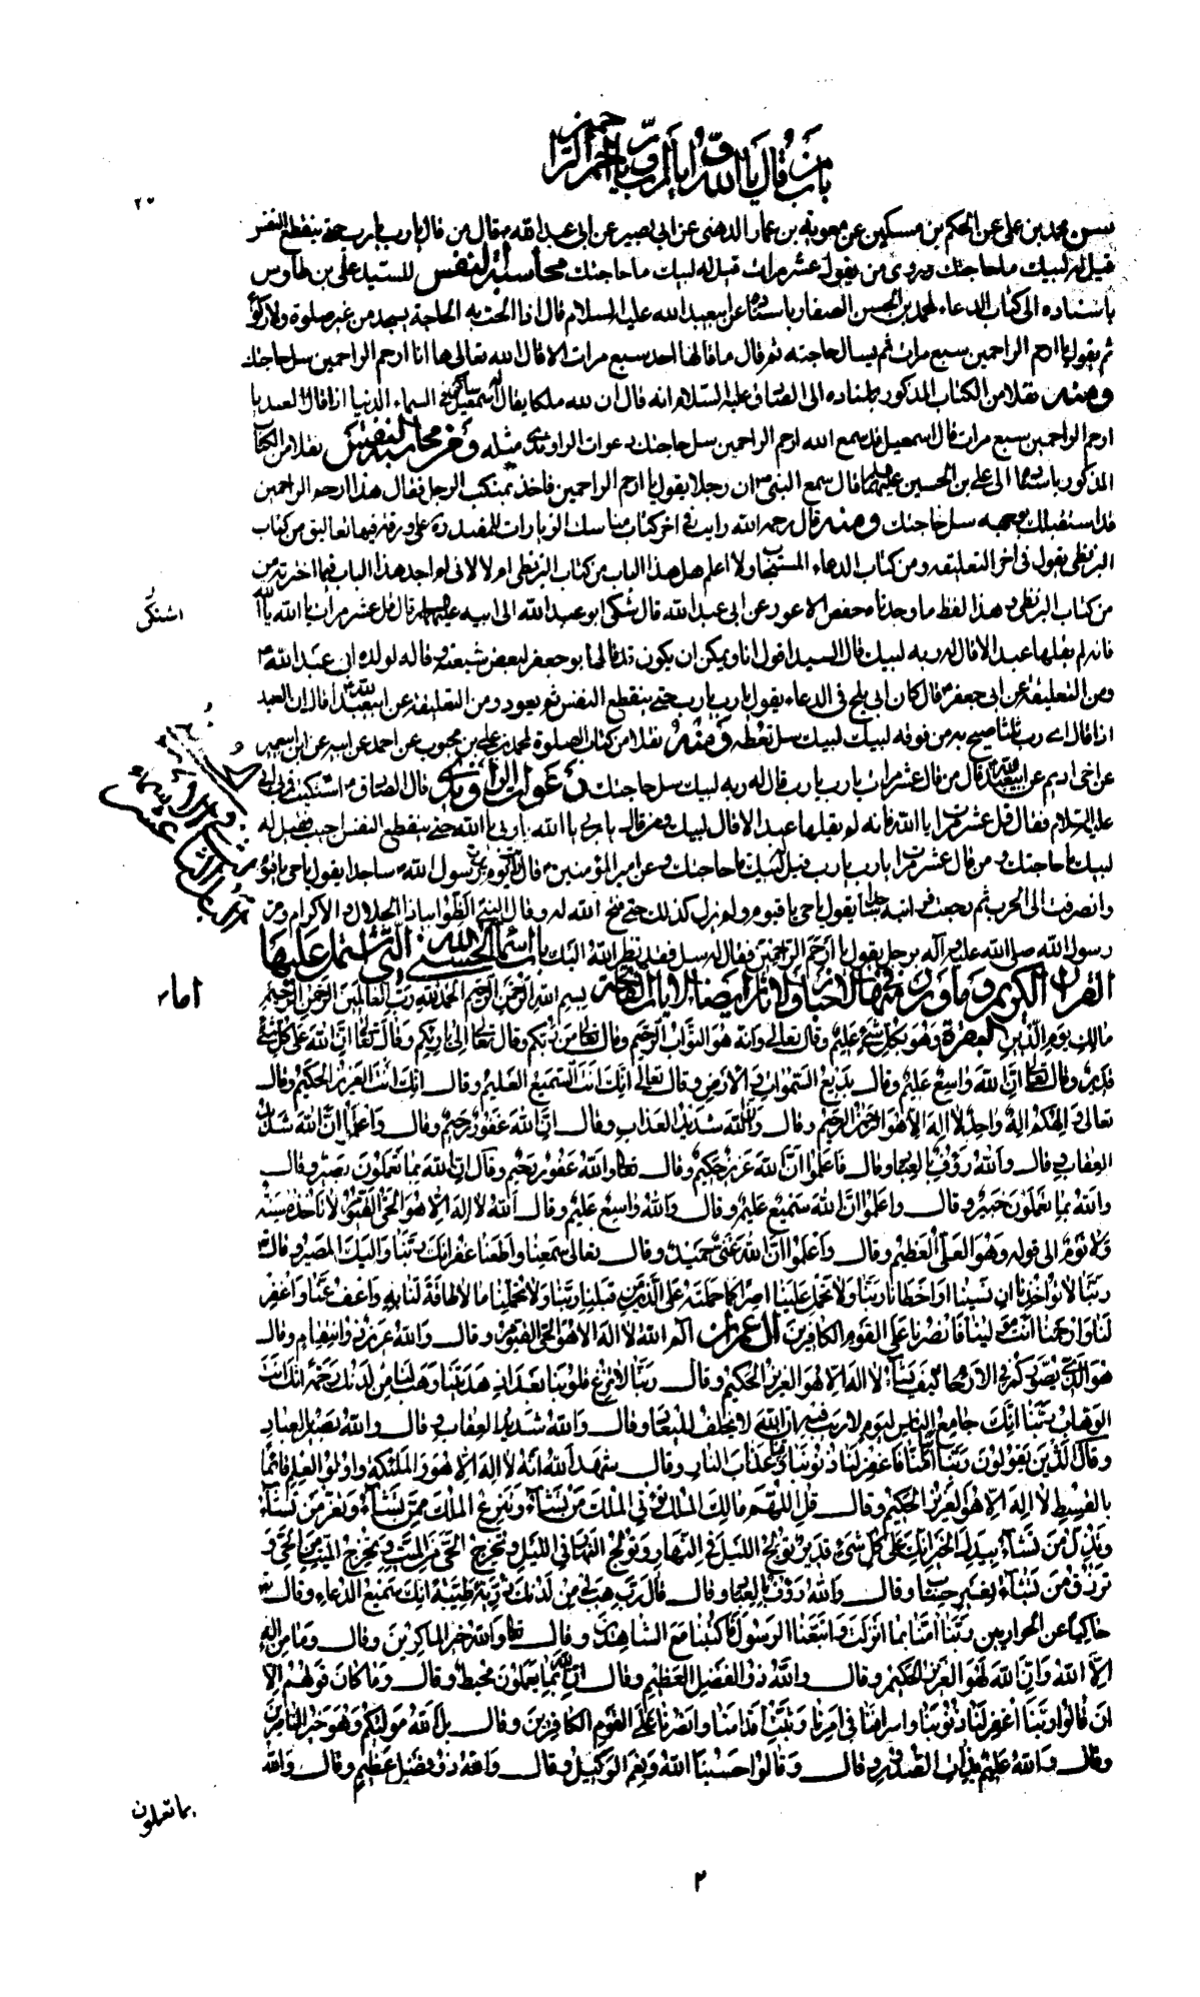 باب من قال يا الله ويا رب ويا ارحم الراحمين
سن محمد بن علي عن الحكم بن مسكين عن معوية بن عمار الدهني عن ابي بصير عن ابي عبد الله قال من قال يا رب يا رب حتى ينقطع النفس
قيل له لبيك ما حاجتك وروى من يقول عشر مرات قيل له لبيك ما حاجتك محاسبة النفس للسيد علي بن طاوس
باسناده الى كتاب الدعاء لمحمد بن الحسن الصفار باسناده عن ابيعبد الله عليه السلام قال اذا الحت به الحاجة يسجد من غير صلوة ولا ركوع
ثم يقول يا ارحم الراحمين سبع مرات ثم يسال حاجته ثم قال ما قالها احد سبع مرات الا قال الله تعالى ها انا ارحم الراحمين سل حاجتك
ومنه نقلا من الكتاب المذكور باسناده الى الصادق عليه السلام انه قال ان لله ملكا يقال له اسمعيل ساكن في السماء الدنيا اذا قال العبد يا
ارحم الراحمين سبع مرات قال اسمعيل قد سمع الله ارحم الراحمين سل حاجتك دعوات الراوندي مثله ومن محاسبة النفس نقلا من الكتاب
المذكور باسناده الى علي بن الحسين عليهما قال سمع النبي ص ان رجلا يقول يا ارحم الراحمين فاخذ بمنكب الرجل فقال هذا ارحم الراحمين
قد استقبلك بوجهه سل حاجتك ومنه قال رحمه الله رايت في اخر كتاب مناسك الزيارات للمفيد ره على ورقة فيها تعاليق من كتاب
البزنطي يقول في اخر التعليقه ومن كتاب الدعاء المستجاب ولا اعلم هل هذا الباب من كتاب البزنطي ام لا لاني لم اجد هذا الباب فيما اخترته من
من كتاب البزنطي وهذا لفظ ما وجدناه حفص الاعور عن ابي عبد الله قال شكى ابو عبد الله الى ابيه عليهما قال قل عشر مرات يا الله يا الله
فانه لم يقلها عبد الا قال له ربه لبيك قال السيد اقول انا ويمكن ان يكون قد قالها ابو جعفر لبعض شيعته وقاله لولده ابي عبد الله
ومن التعليقة عن ابي جعفر قال كان ابي يلح في الدعاء يقول يا رب يا رب حتى ينقطع النفس ثم يعود ومن التعليقة عن ابيعبد الله قال ان العبد
اذا قال اي رب ثلثا صيح به من فوقه لبيك لبيك سل تعطه ومنه نقلا من كتاب الصلوة لمحمد بن علي بن محبوب عن احمد عن ابيه عن ابن ابي عمير
عن اخي اديم عن ابيعبد الله قال من قال عشر مرات يا رب يا رب قال له ربه لبيك سل حاجتك دعوات الراوندي قال الصادق اشتكيت فمر بي ابي
عليه السلام فقال قل عشر مرات يا الله فانه لم يقلها عبد الا قال لبيك ومن قال يا ربي يا الله يا ربي يا الله حتى ينقطع النفس اجيب فقيل له
لبيك ما حاجتك ومن قال عشر مرات يا رب يا رب قيل له لبيك ما حاجتك وعن امير المؤمنين قال رسول الله ساجدا يقول يا حي يا قيوم
وانصرفت الى الحرب ثم رجعت فرايته ساجدا يقول يا حي يا قيوم ولم يزل كذلك حتى فتح الله له وقال النبي الظوا بيا ذا الجلال والاكرام ومر
رسول الله صلى الله عليه وآله برجل يقول يا ارحم الراحمين فقال له سل فقد نظر الله اليك باب اسماء الله الحسنى التي اشتمل عليها
القران الكريم وما ورد منها في الاخبار والاثار ايضا الايات الفاتحة بسم الله الرحمن الرحيم الحمد لله رب العالمين الرحمن الرحيم
مالك يوم الدين البقرة وهو بكل شيء عليم وقال تعالى وانه هو التواب الرحيم وقال تعالى من ربكم وقال تعالى الى باريكم وقال تعالى ان الله على كل شيء
قدير وقال تعالى ان الله واسع عليم وقال بديع السموات والارض وقال تعالى انك انت السميع العليم وقال انك انت العزيز الحكيم وقال
تعالى والهكم اله واحد لا اله الا هو الرحمن الرحيم وقال وان الله شديد العذاب وقال ان الله غفور رحيم وقال واعلموا ان الله شديد
العقاب وقال والله رؤف بالعباد وقال فاعلموا ان الله عزيز حكيم وقال تعالى والله غفور رحيم وقال ان الله بما تعملون بصير وقال
والله بما تعملون خبير وقال واعلموا ان الله سميع عليم وقال والله واسع عليم وقال الله لا اله الا هو الحي القيوم لا تاخذه سنة
ولا نوم الى قوله وهو العلي العظيم وقال واعلموا ان الله غني حميد وقال تعالى سمعنا واطعنا غفرانك ربنا واليك المصير وقال
ربنا لا تؤاخذنا ان نسينا او اخطانا ربنا ولا تحمل علينا اصرا كما حملته على الذين من قبلنا ربنا ولا تحملنا ما لا طاقة لنا به واعف عنا واغفر
لنا وارحمنا انت مولينا فانصرنا على القوم الكافرين ال عمران الم الله لا اله الا هو الحي القيوم وقال والله عزيز ذو انتقام وقال
هو الذي يصوركم في الارحام كيف يشاء لا اله الا هو العزيز الحكيم وقال ربنا لا تزغ قلوبنا بعد اذ هديتنا وهب لنا من لدنك رحمة انك انت
الوهاب ربنا انك جامع الناس ليوم لا ريب فيه ان الله لا يخلف الميعاد وقال والله شديد العقاب وقال والله بصير بالعباد
وقال الذين يقولون ربنا اننا امنا فاغفر لنا ذنوبنا وقنا عذاب النار وقال شهد الله انه لا اله الا هو والملئكة واولوا العلم قائما
بالقسط لا اله الا هو العزيز الحكيم وقال قل اللهم مالك الملك تؤتي الملك من تشاء وتنزع الملك ممن تشاء وتعز من تشاء
وتذل من تشاء بيدك الخير انك على كل شيء قدير تولج الليل في النهار وتولج النهار في الليل وتخرج الحي من الميت وتخرج الميت من الحي و
ترزق من تشاء بغير حساب وقال والله رؤف بالعباد وقال قال رب هب لي من لدنك ذرية طيبة انك سميع الدعاء وقال
حاكيا عن الحواريين ربنا امنا بما انزلت واتبعنا الرسول فاكتبنا مع الشاهدين وقال تعالى والله خير الماكرين وقال وما من اله
الا الله وان الله لهو العزيز الحكيم وقال والله ذو الفضل العظيم وقال ان الله بما يعملون محيط وقال وما كان قولهم الا
ان قالوا ربنا اغفر لنا ذنوبنا واسرافنا في امرنا وثبت اقدامنا وانصرنا على القوم الكافرين وقال بل الله موليكم وهو خير الناصرين
وقال والله عليم بذات الصدور وقال وقالوا حسبنا الله ونعم الوكيل وقال والله ذو فضل عظيم وقال والله
اشتكى
بما تعملون
٢